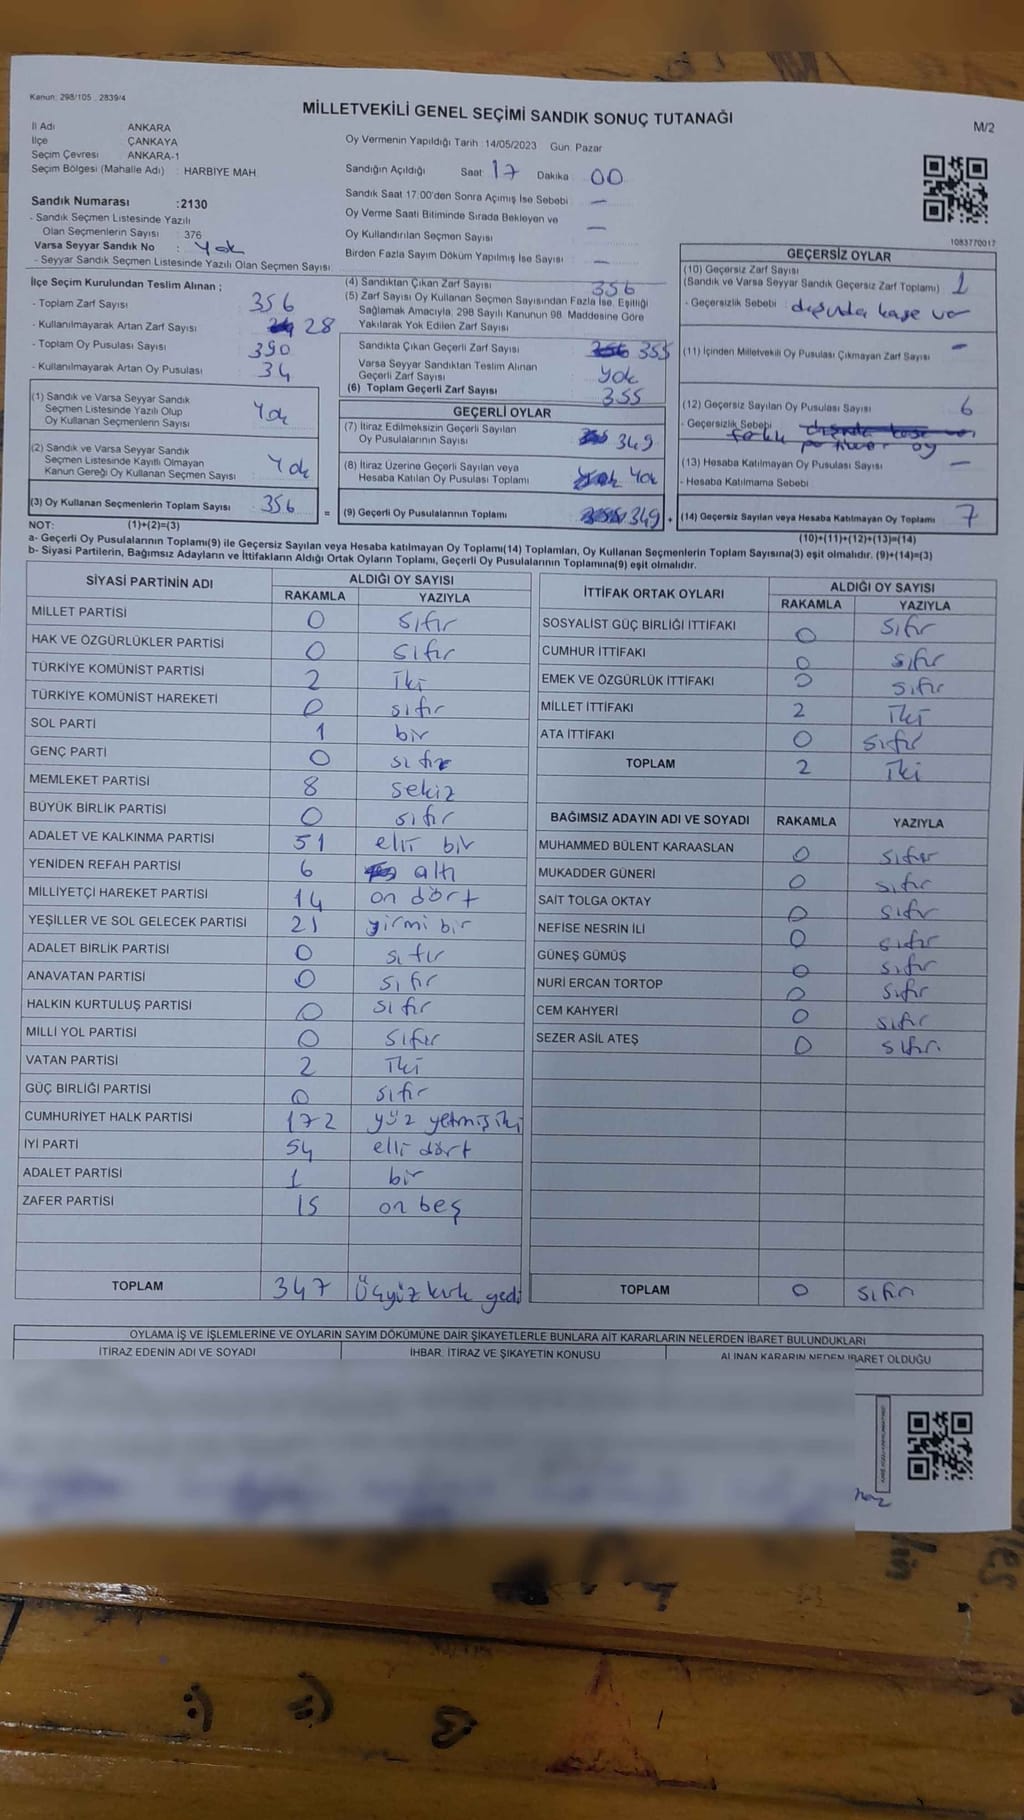 Kanun: 298/105 2839/4
MİLLETVEKİLİ GENEL SEÇİMİ SANDIK SONUÇ TUTANAĞI
M/2
İl Adı ANKARA
İlçe ÇANKAYA
Seçim Çevresi ANKARA-1
Seçim Bölgesi (Mahalle Adı) : HARBİYE MAH.
Sandık Numarası :2130
- Sandık Seçmen Listesinde Yazılı
Olan Seçmenlerin Sayısı : 376
Varsa Seyyar Sandık No : Yok
- Seyyar Sandık Seçmen Listesinde Yazılı Olan Seçmen Sayısı
Oy Vermenin Yapıldığı Tarih : 14/05/2023 Gün: Pazar
Sandığın Açıldığı Saat : 17 Dakika : 00
Sandık Saat 17:00'den Sonra Açımış İse Sebebi : —
Oy Verme Saati Bitiminde Sırada Bekleyen ve
Oy Kullandırılan Seçmen Sayısı —
Birden Fazla Sayım Döküm Yapılmış İse Sayısı : —
1083770017
İlçe Seçim Kurulundan Teslim Alınan ;
- Toplam Zarf Sayısı 356
- Kullanılmayarak Artan Zarf Sayısı 28
- Toplam Oy Pusulası Sayısı 390
- Kullanılmayarak Artan Oy Pusulası : 34
(1) Sandık ve Varsa Seyyar Sandık
Seçmen Listesinde Yazılı Olup
Oy Kullanan Seçmenlerin Sayısı Yok
(2) Sandık ve Varsa Seyyar Sandık
Seçmen Listesinde Kayıtlı Olmayan
Kanun Gereği Oy Kullanan Seçmen Sayısı : Yok
(3) Oy Kullanan Seçmenlerin Toplam Sayısı : 356
NOT: (1)+(2)=(3)
(4) Sandıktan Çıkan Zarf Sayısı 356
(5) Zarf Sayısı Oy Kullanan Seçmen Sayısından Fazla İse, Eşitliği
Sağlamak Amacıyla, 298 Sayılı Kanunun 98. Maddesine Göre
Yakılarak Yok Edilen Zarf Sayısı
Sandıkta Çıkan Geçerli Zarf Sayısı 355
Varsa Seyyar Sandıktan Teslim Alınan
Geçerli Zarf Sayısı Yok
(6) Toplam Geçerli Zarf Sayısı 355
GEÇERLİ OYLAR
(7) İtiraz Edilmeksizin Geçerli Sayılan
Oy Pusulalarının Sayısı 349
(8) İtiraz Üzerine Geçerli Sayılan veya
Hesaba Katılan Oy Pusulası Toplamı Yok
= (9) Geçerli Oy Pusulalarının Toplamı 349 +
GEÇERSİZ OYLAR
(10) Geçersiz Zarf Sayısı
(Sandık ve Varsa Seyyar Sandık Geçersiz Zarf Toplamı) : 1
- Geçersizlik Sebebi : dışında kaşe var
(11) İçinden Milletvekili Oy Pusulası Çıkmayan Zarf Sayısı —
(12) Geçersiz Sayılan Oy Pusulası Sayısı 6
- Geçersizlik Sebebi
oy
(13) Hesaba Katılmayan Oy Pusulası Sayısı : —
- Hesaba Katılmama Sebebi
(14) Geçersiz Sayılan veya Hesaba Katılmayan Oy Toplamı : 7
(10)+(11)+(12)+(13)=(14)
a- Geçerli Oy Pusulalarının Toplamı(9) ile Geçersiz Sayılan veya Hesaba katılmayan Oy Toplamı(14) Toplamları, Oy Kullanan Seçmenlerin Toplam Sayısına(3) eşit olmalıdır. (9)+(14)=(3)
b- Siyasi Partilerin, Bağımsız Adayların ve İttifakların Aldığı Ortak Oyların Toplamı, Geçerli Oy Pusulalarının Toplamına(9) eşit olmalıdır.
SİYASİ PARTİNİN ADI ALDIĞI OY SAYISI
RAKAMLA YAZIYLA
MİLLET PARTİSİ 0 sıfır
HAK VE ÖZGÜRLÜKLER PARTİSİ 0 sıfır
TÜRKİYE KOMÜNİST PARTİSİ 2 iki
TÜRKİYE KOMÜNİST HAREKETİ 0 sıfır
SOL PARTİ 1 bir
GENÇ PARTİ 0 sıfır
MEMLEKET PARTİSİ 8 sekiz
BÜYÜK BİRLİK PARTİSİ 0 sıfır
ADALET VE KALKINMA PARTİSİ 51 elli bir
YENİDEN REFAH PARTİSİ 6 altı
MİLLİYETÇİ HAREKET PARTİSİ 14 on dört
YEŞİLLER VE SOL GELECEK PARTİSİ 21 yirmi bir
ADALET BİRLİK PARTİSİ 0 sıfır
ANAVATAN PARTİSİ 0 sıfır
HALKIN KURTULUŞ PARTİSİ 0 sıfır
MİLLİ YOL PARTİSİ 0 sıfır
VATAN PARTİSİ 2 iki
GÜÇ BİRLİĞİ PARTİSİ 0 sıfır
CUMHURİYET HALK PARTİSİ 172 yüz yetmiş iki
İYİ PARTİ 54 elli dört
ADALET PARTİSİ 1 bir
ZAFER PARTİSİ 15 on beş
TOPLAM 347 Üçyüz kırk yedi
İTTİFAK ORTAK OYLARI ALDIĞI OY SAYISI
RAKAMLA YAZIYLA
SOSYALİST GÜÇ BİRLİĞİ İTTİFAKI 0 sıfır
CUMHUR İTTİFAKI 0 sıfır
EMEK VE ÖZGÜRLÜK İTTİFAKI 0 sıfır
MİLLET İTTİFAKI 2 iki
ATA İTTİFAKI 0 sıfır
TOPLAM 2 iki
BAĞIMSIZ ADAYIN ADI VE SOYADI RAKAMLA YAZIYLA
MUHAMMED BÜLENT KARAASLAN 0 sıfır
MUKADDER GÜNERİ 0 sıfır
SAİT TOLGA OKTAY 0 sıfır
NEFİSE NESRİN İLİ 0 sıfır
GÜNEŞ GÜMÜŞ 0 sıfır
NURİ ERCAN TORTOP 0 sıfır
CEM KAHYERİ 0 sıfır
SEZER ASİL ATEŞ 0 sıfır
TOPLAM 0 sıfır
OYLAMA İŞ VE İŞLEMLERİNE VE OYLARIN SAYIM DÖKÜMÜNE DAİR ŞİKAYETLERLE BUNLARA AİT KARARLARIN NELERDEN İBARET BULUNDUKLARI
İTİRAZ EDENİN ADI VE SOYADI İHBAR, İTİRAZ VE ŞİKAYETİN KONUSU ALINAN KARARIN NEDEN İBARET OLDUĞU